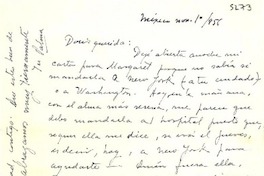 5273
México nov. 1º/956
Doris querida: Dejé abierta anoche mi
carta para Margaret porque no sabía si
mandarla a New York (a tu cuidado)
o a Washington. Hoy en la mañana,
con el alma más serena, me parece que
debo mandarla al hospital puesto que,
según ella me dice, se irá el jueves,
es decir, hoy, a New York para
ayudarte — Quién fuera ella,
abrazamos muy tiernamente
Tu Palma
contigo. Por este beso de